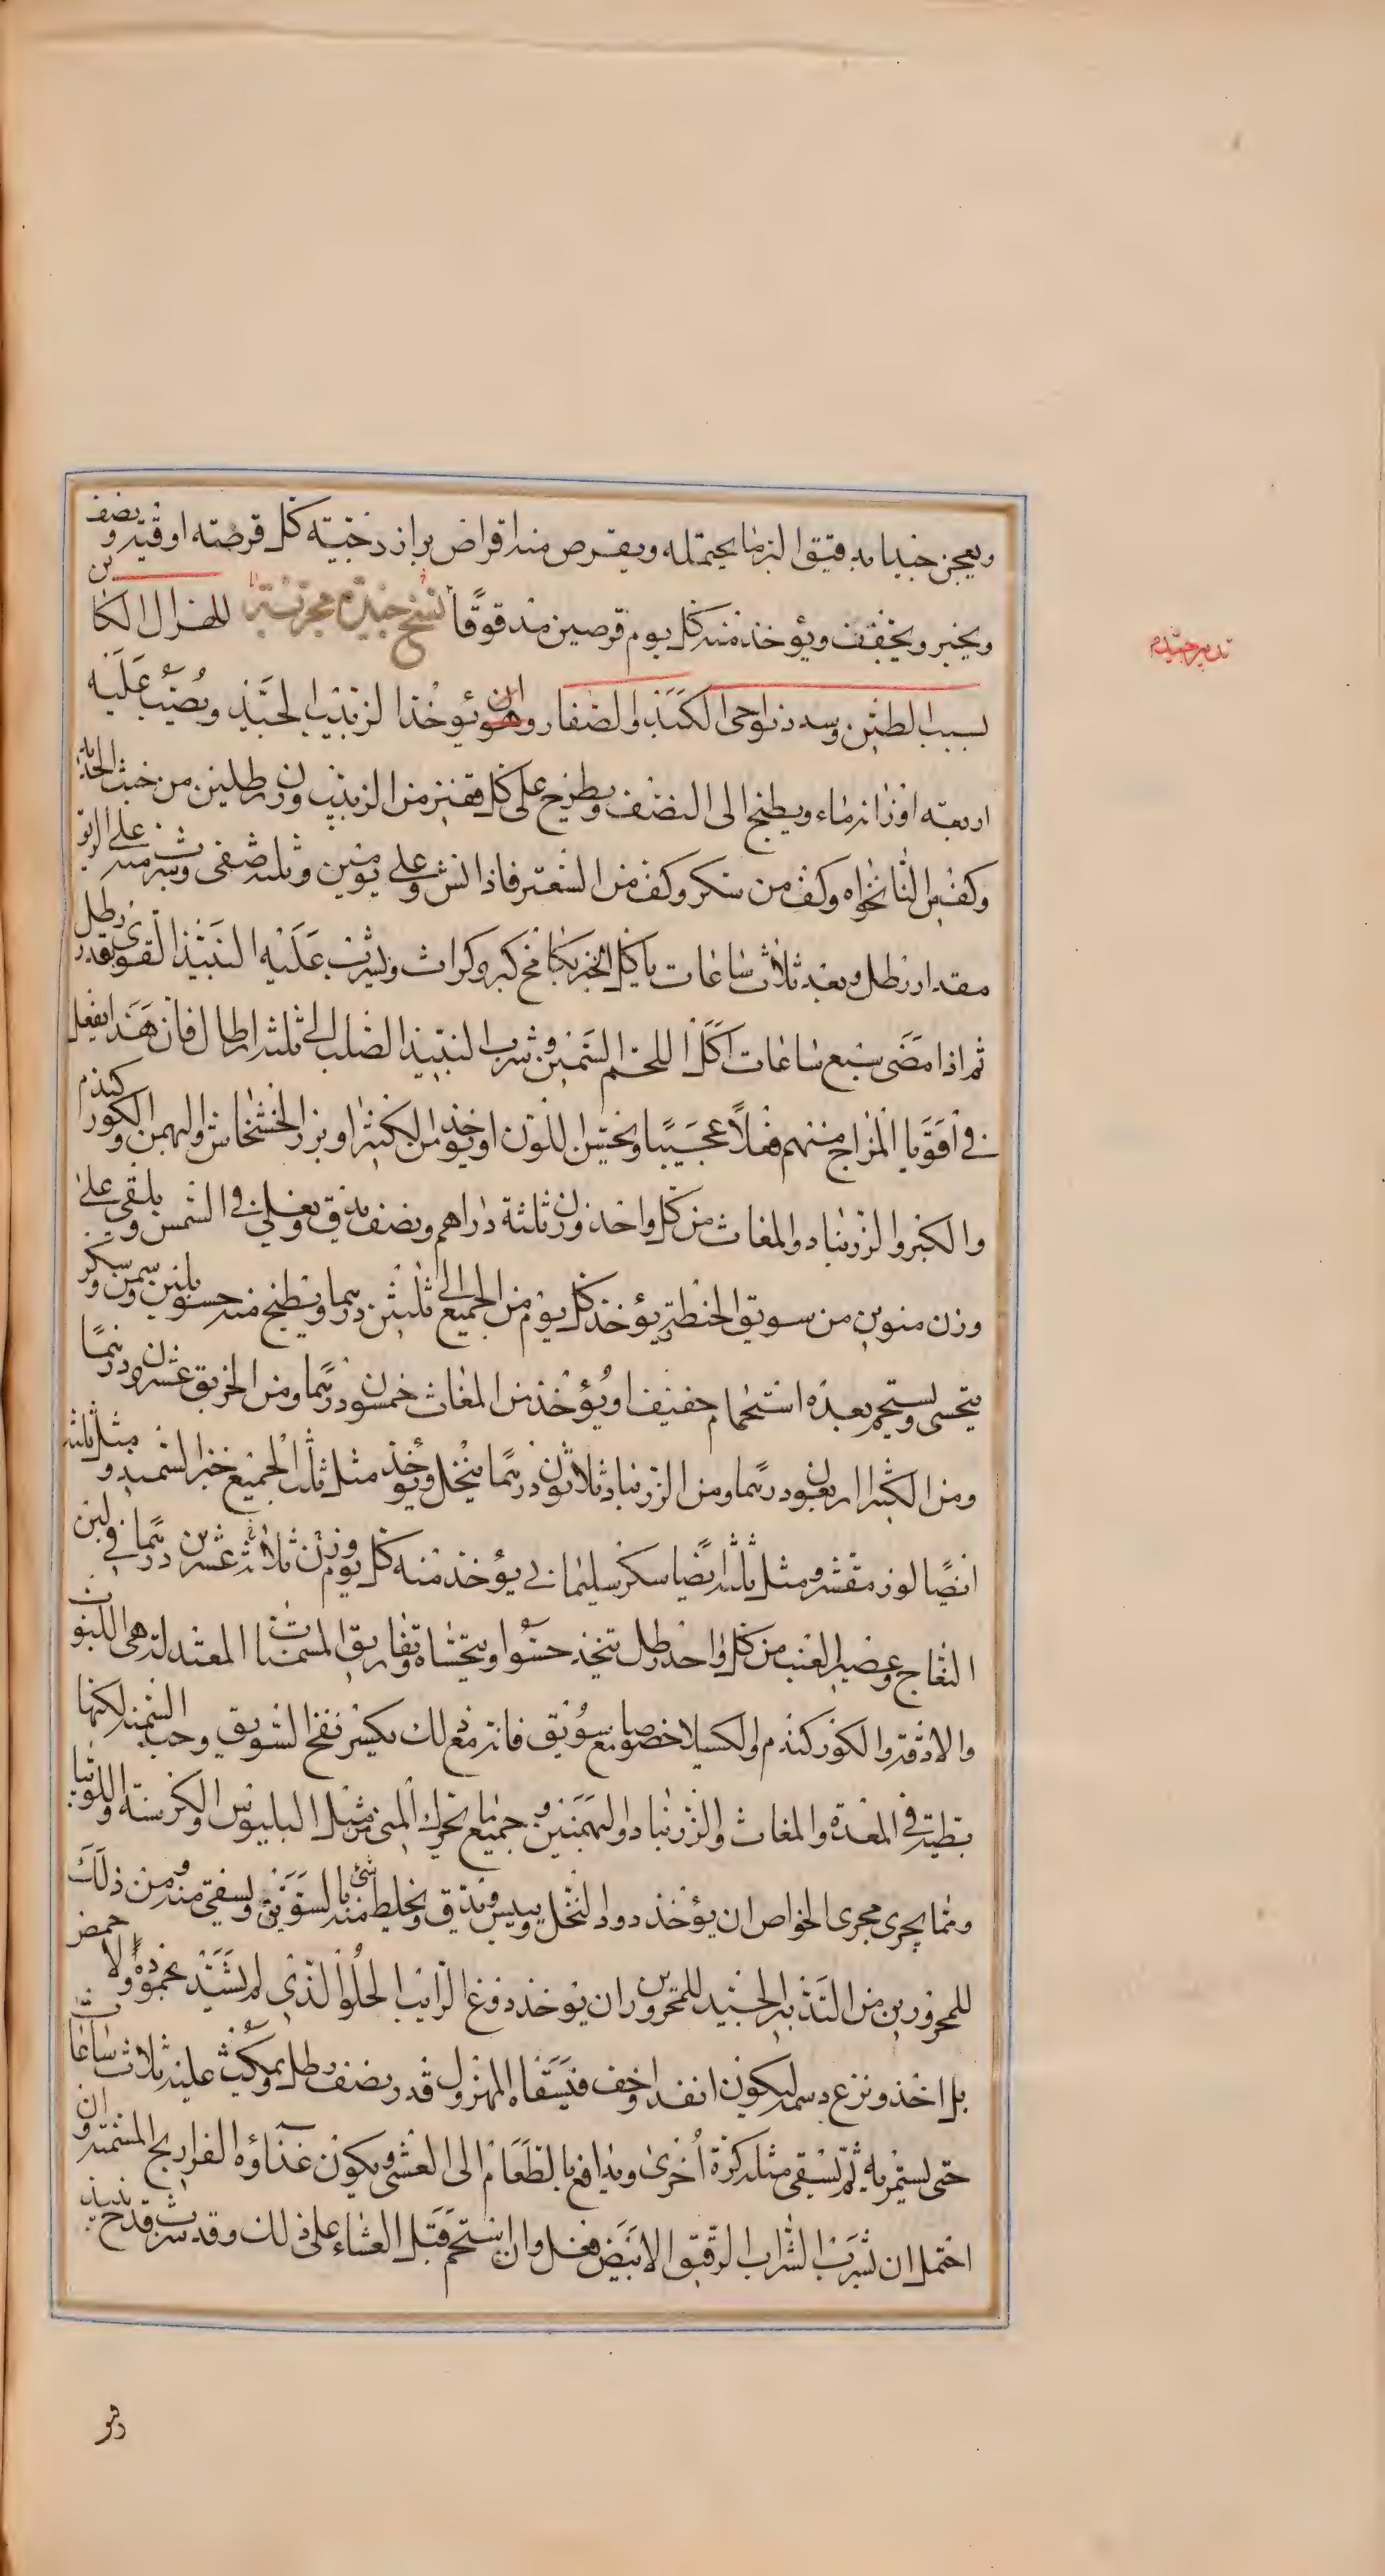 ويعجن جيدا بدقيق البر ما يحتمله ويقرص منه اقراص براززجيته كل قرصته اوقيه ونصف
ويخبز ويجفف ويؤخذ منه كل يوم قرصين مدقوقا نسخ جيدة مجربة للهزال الكائن
بسبب الطين وسدد نواحى الكبد والصفار وهو ان يؤخذ الزبيب الجيد ويصب عليه
تدبير جيد
اربعة اوزانه ماء ويطبخ الى النصف ويطرح على كل قفيز من الزبيب وزن رطلين من خبث الحديد
وكف من النانخواه وكف من سكر وكف من السعتر فاذا نش وعلى يومين وثلثه صفى وشرب منه على الريق
مقدار رطل وبعد ثلاث ساعات ياكل الخبز بكامخ كبر وكراث ويشرب عليه النبيذ القوى بقدر رطل
ثم اذا مضى سبع ساعات اكل اللحم السمين وشرب النبيذ الصلب الى ثلثه ارطال فان هذا يفعل
فى اقويا المزاج منهم فعلا عجيبا ويحسن اللون او يؤخذ من الكثيرا وبزر الخشخاش والبهمن والكوركندم
والكبر والزرنباد والمغاث من كل واحد وزن ثلثة دراهم ونصف يدق ويغلى فى الشمس ويلقى على
وزن منوين من سويق الحنطة يؤخذ كل يوم من الجميع الى ثلثين درهما ويطبخ منه حسو بلبن وسمن وسكر
يتحسى ويستحم بعده استحمام خفيف او يؤخذ من المغاث خمسون درهما ومن الخربق عشرون درهما
ومن الكثيرا اربعون درهما ومن الزرنباد ثلاثون درهما ينخل ويؤخذ مثل ثلث الجميع خبز السميد ومثل ثلثه
ايضا لوز مقشر ومثل ثلثه ايضا سكر سليمانى يؤخذ منه كل يوم وزن ثلاثه عشرين درهما فى لبن
النعاج وعصير العنب من كل واحد رطل يتخذ حسوا ويتحساه وتفاريق المسمنات المعتدلة هى اللبوب
والادقة والكوركندم والكسيلا خصوصا مع سويق فانه مع ذلك يكسر نفخ السويق وحب السمنه لكنها
بطية فى المعدة والمغاث والزرنباد والبهمنين وجميع ما يحرك المنى مثل البلبوس والكرسنة واللوبيا
ومما يجرى مجرى الخواص ان يؤخذ دود النخل وييبس ويدق ويخلط منه شئ بالسويق ويسقى منه ومن ذلك
للمحرورين من التدبير الجيد للمحرورين ان يؤخذ دوغ الرايب الحلو الذى لم يشتد بحموده ولا حمض
بل اخذ ونزع دسمه ليكون انفد واخف فيسقاه المهزول قدر نصف رطل ويمكث عليه ثلاث ساعات
حتى يستمريه ثم يسقى مثله كرة اخرى ويدافع بالطعام الى العشى ويكون غذاؤه الفراريج المسمنة وان
احتمل ان يشرب الشراب الرقيق الابيض فعل وان استحم قبل العشاء على ذلك وقد شرب قدح نبيذ